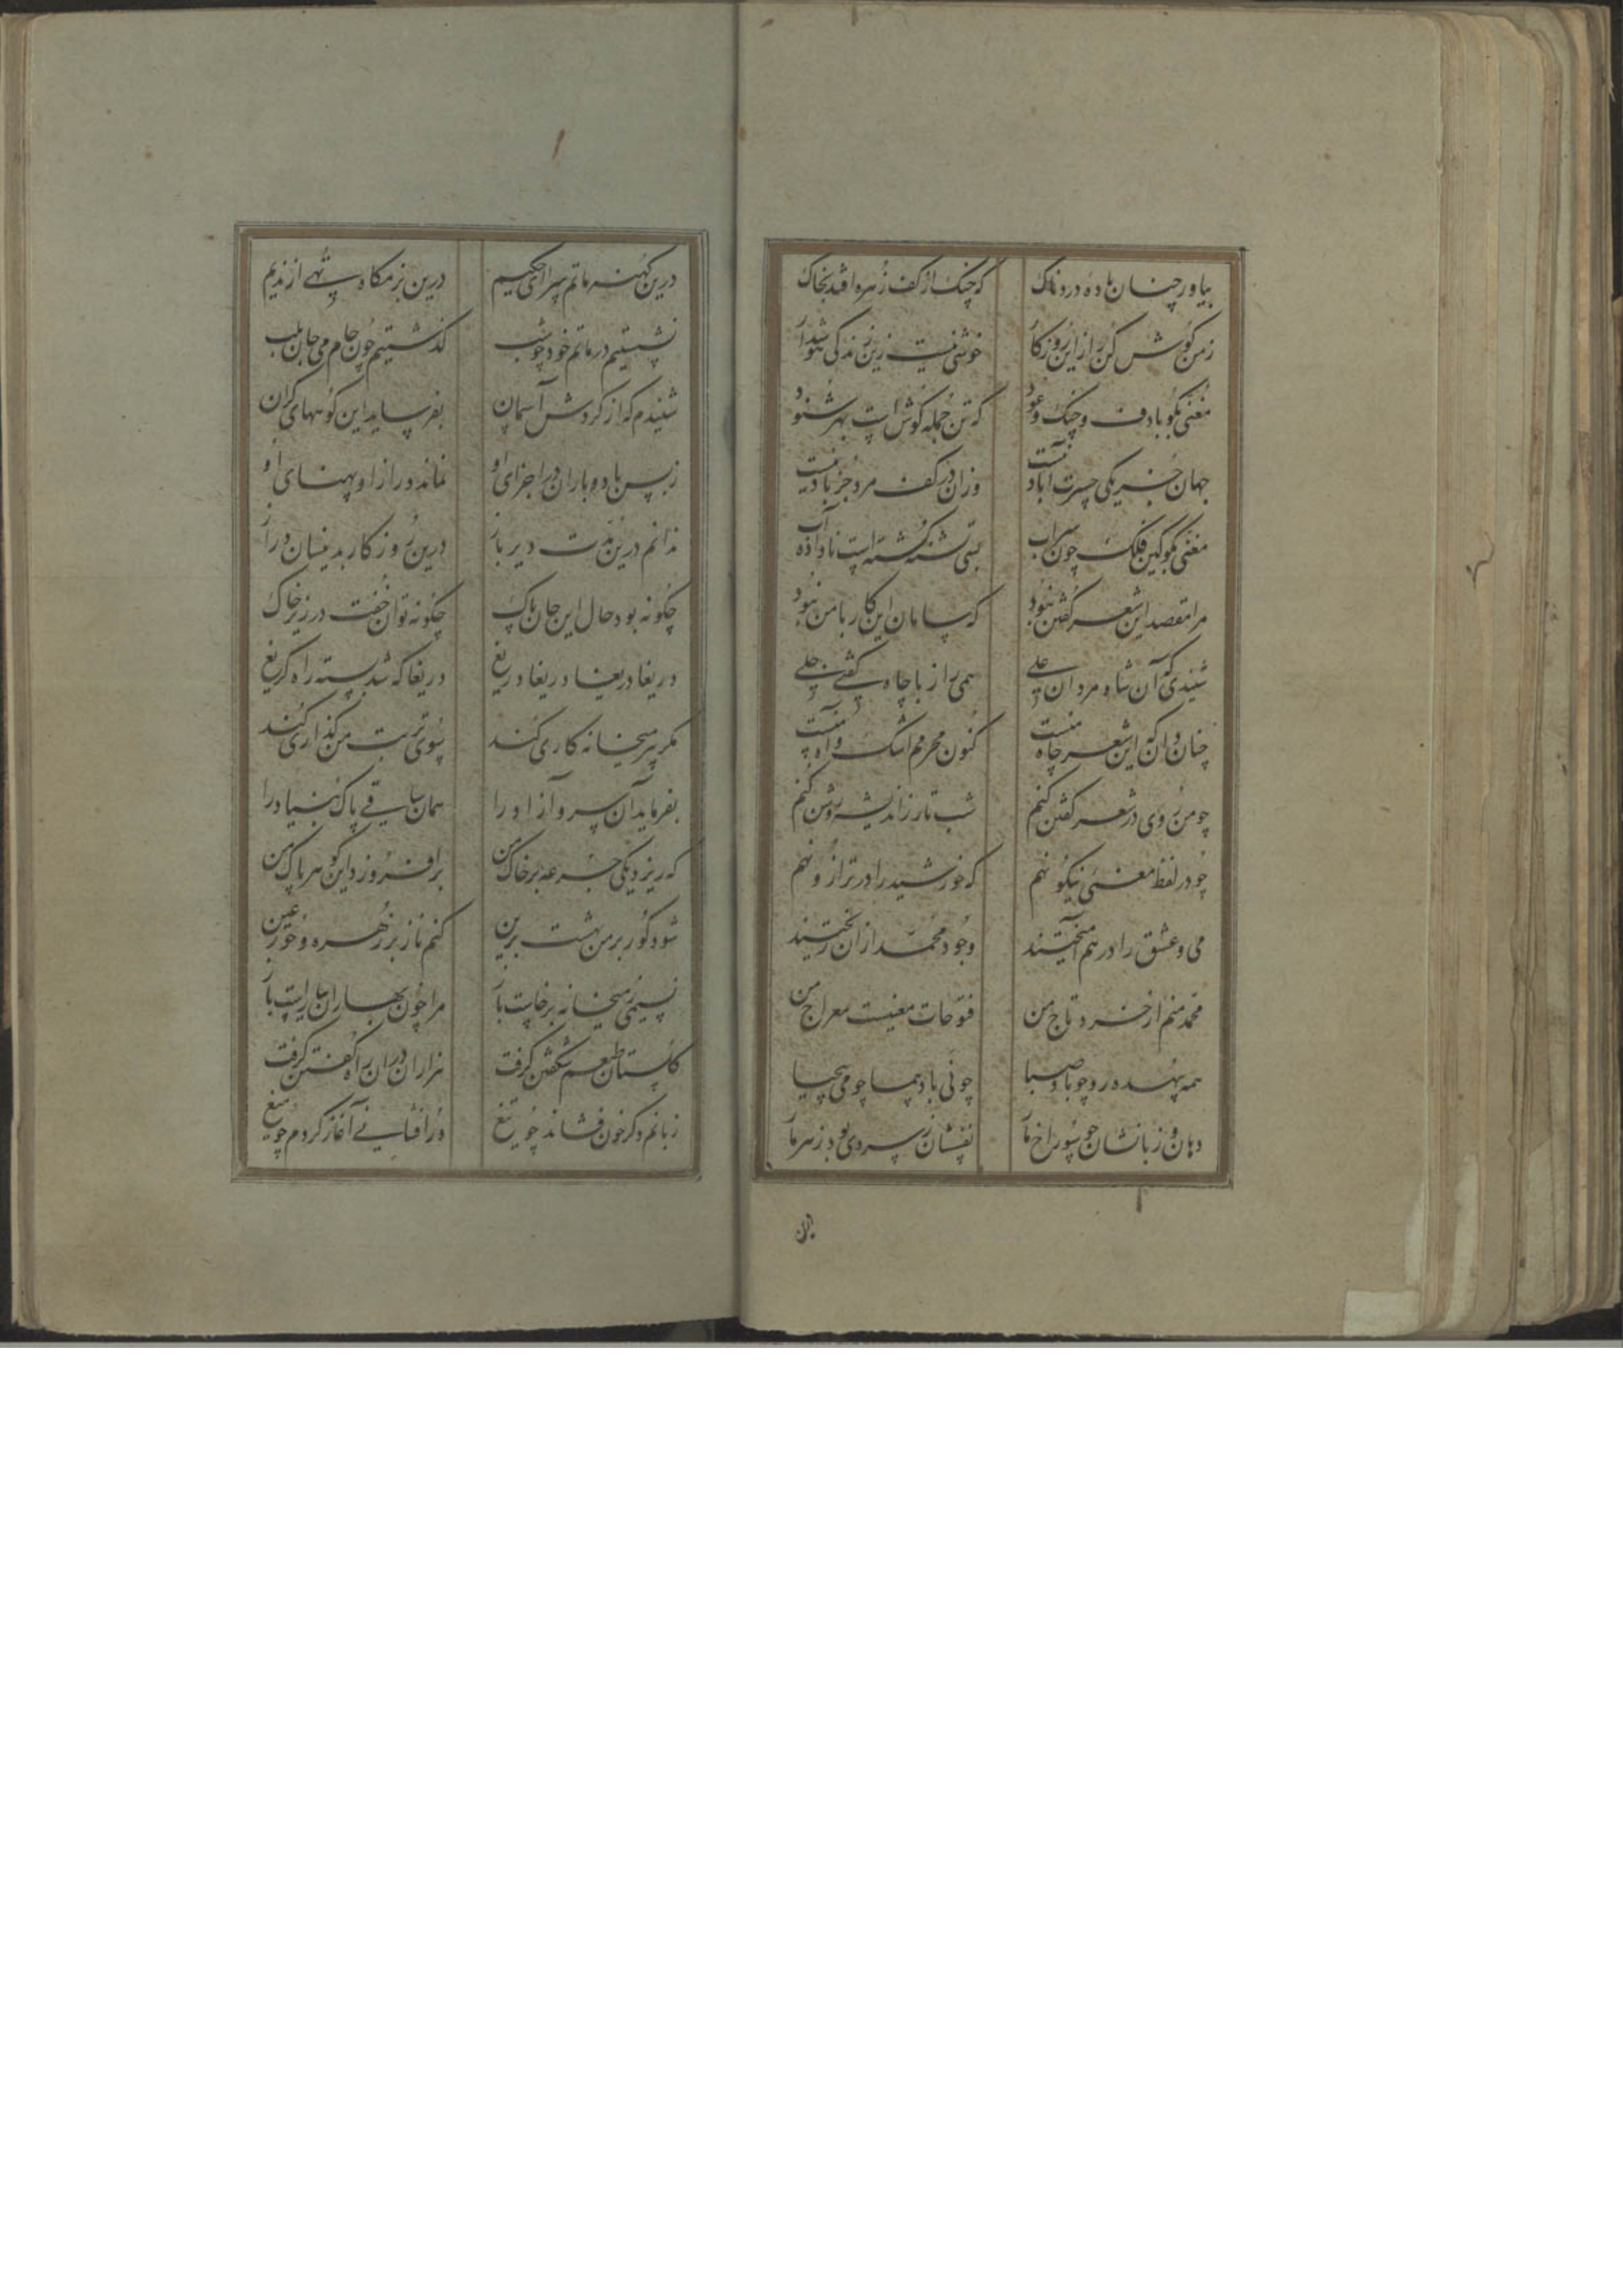 بیاور چنان باده دردناک که چنگ از کف زهره افتد بخاک
ز من گوش کن راز این روزگار خوشی نیست زین زندگی
مغنی بگو با دف و چنگ و عود که تن جمله گوش است بهر شنود
جهان جز یکی حسرت آباد نیست وزان در کف مرد جز باد نیست
مغنی بگو کین فلک چون سراب بسی تشنه کشته است ناداده آب
مرا مقصد این شعر گفتن نبود که سامان این کار با من نبود
شنیدی که آن شاه مردان علی همی راز با چاه گفتی
چنان دان که این شعر چاه منست کنون محرمم اشک و آه منست
چو من روی در شعر گفتن کنم شب تار ز اندیشه روشن کنم
چو در لفظ معنی نیکو نهم که خورشید را در ترازو نهم
می و عشق را در هم آمیختند وجود محمد از آن ریختند
محمد منم از خرد تاج من فتوحات معنیست معراج من
همه بیهده رو چو باد صبا چو نی باد پیما چو می
دهان و زبانشان چو سوراخ مار نفسشان ز سردی بود زهر مار
درین کهنه ماتم سرای حکیم درین بزمگاه تهی از ندیم
نشستیم در ماتم خود چو شب گذشتیم چون جام می جان بلب
شنیدم که از گردش آسمان بفرساید این کوههای گران
ز بس باد و باران در اجزای او نماند درازا و پهنای او
ندانم درین مدت دیرباز درین روزگار بدینسان دراز
چگونه بود حال این جان پاک چگونه توان خفت در زیر خاک
دریغا دریغا دریغا دریغ دریغا که شد بسته راه گریغ
مگر پیر میخانه کاری کند بسوی تربت من گذاری کند
بفرماید آن سرو آزاد را همان ساقی پاک بنیاد را
که ریزد یکی جرعه بر خاک من برافروزد این گوهر پاک من
شود گور بر من بهشت برین کنم ناز بر زهره و حور عین
نسیمی ز میخانه برخاست باز مرا چون بهاران بیاراست باز
گلستان طبعم شکفتن گرفت هزاران در آن راه گفتن گرفت
زبانم دگر خون فشاند چو تیغ در افشانی آغاز کردم چو میغ